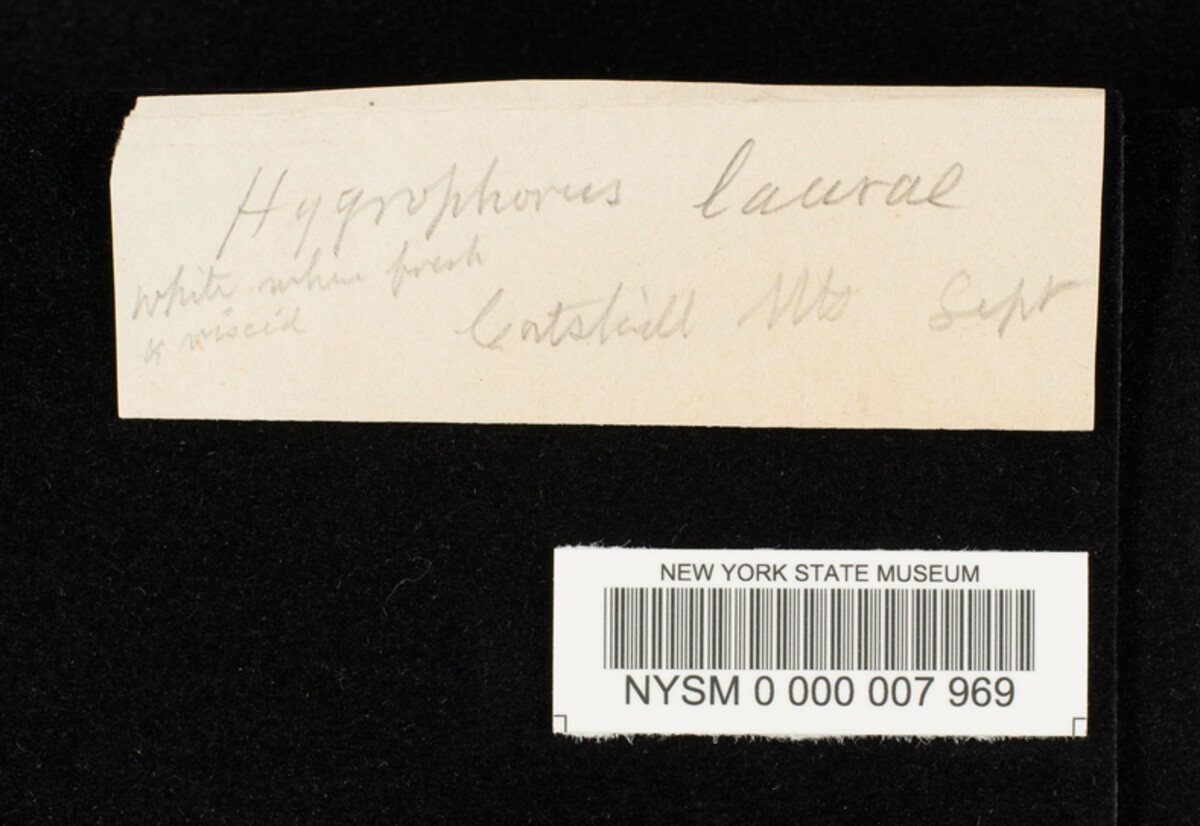 Hygrophorus laurae
white when fresh
& viscid
Catskill Mts Sept
NEW YORK STATE MUSEUM
NYSM 0 000 007 969